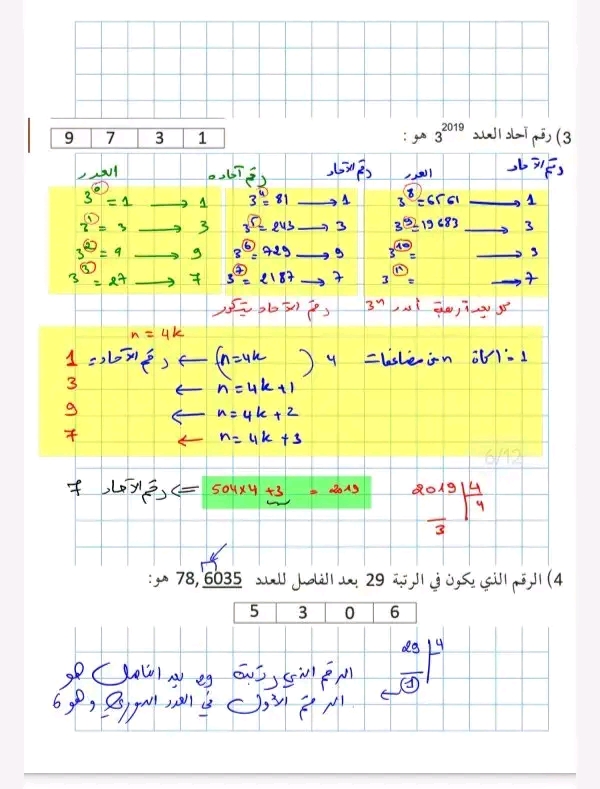 3) رقم آحاد العدد 3^2019 هو :
9 7 3 1
العدد رقم آحاده العدد رقم الآحاد العدد رقم الآحاد
3^0 = 1 → 1 3^4 = 81 → 1 3^8 = 6561 → 1
3^1 = 3 → 3 3^5 = 243 → 3 3^9 = 19683 → 3
3^2 = 9 → 9 3^6 = 729 → 9 3^10 = → 9
3^3 = 27 → 7 3^7 = 2187 → 7 3^11 = → 7
كل بعد أربعة 3^n رقم الآحاد يتكرر
n = 4k
n من مضاعفات 4 (n=4k) ← رقم الآحاد = 1
n = 4k+1 ← 3
n = 4k+2 ← 9
n = 4k+3 ← 7
6/12
2019 4
4
3
504x4 +3 = 2019 => رقم الآحاد 7
4) الرقم الذي يكون في الرتبة 29 بعد الفاصل للعدد 78,6035 هو:
5 3 0 6
29 4
1
الرقم الذي رتبته 29 بعد الفاصل هو
الرقم الأول في العدد الدوري وهو 6